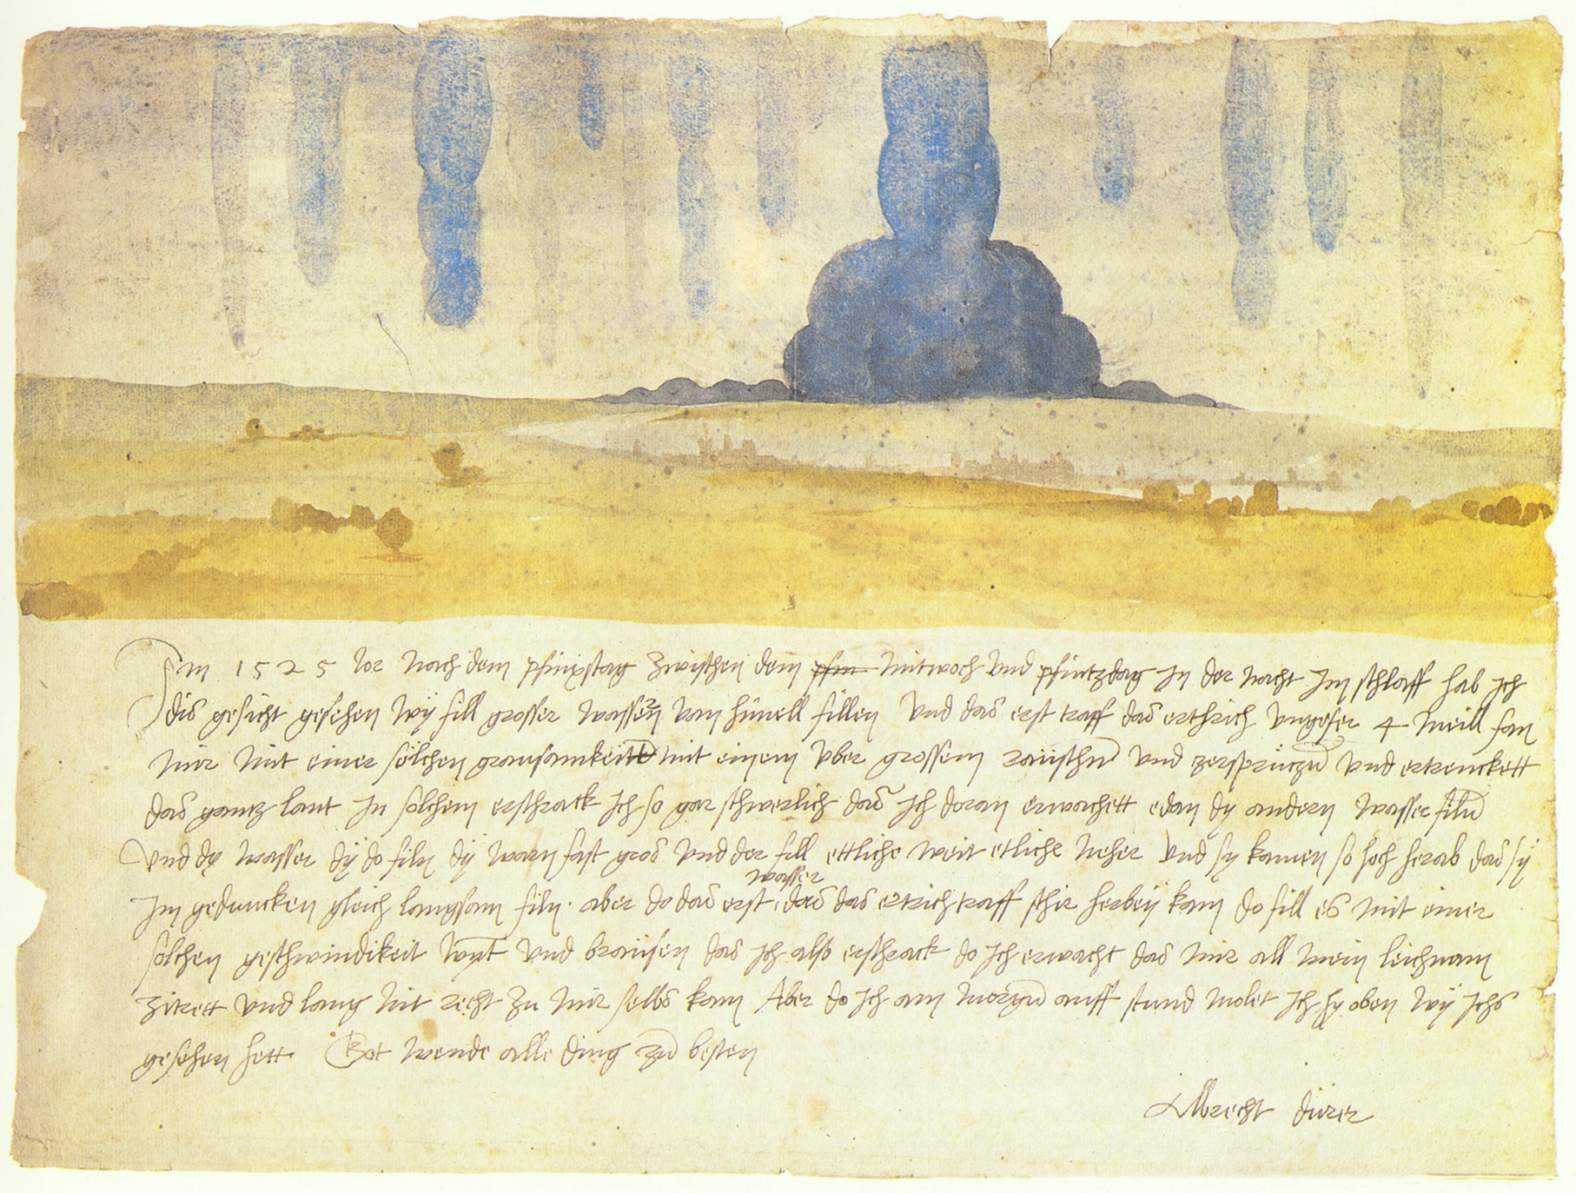 Im 1525 Jor nach dem pfinxstag zwischen dem pfin mitwoch und pfintzdag in der nacht im schlaff hab ich
dis gesicht gesehen wÿ fill grosser wassern van himell fillen und das erst traff das erthrich ungefer 4 meill fan
mir mit einer solchen grausamkeit mit einem uber grossem raüschn und zersprützn und ertrenckett
das gantz lant in solchem erschrack ich so gar schwerlich das ich doran erwachett edan dy andern wasser filn
und dy wasser dÿ do filn dÿ warn fast gros und der fill ettliche weit etliche neher und sy kamen so hoch herab das sÿ
im geduncken gleich langsam filn. aber do das erst wasser das das ertrich traff schir herbeÿ kam do fill es mit einer
solchen geschwindikeit wynt und braüsen das ich also erschrack do ich erwacht das mir all mein leichnam
zitrett und lang nit recht zu mir selbs kam Aber do ich am morgn auff stund molet ich hy oben wÿ ichs
gesehen hett. Got wende alle ding zu besten
Albrecht dürer